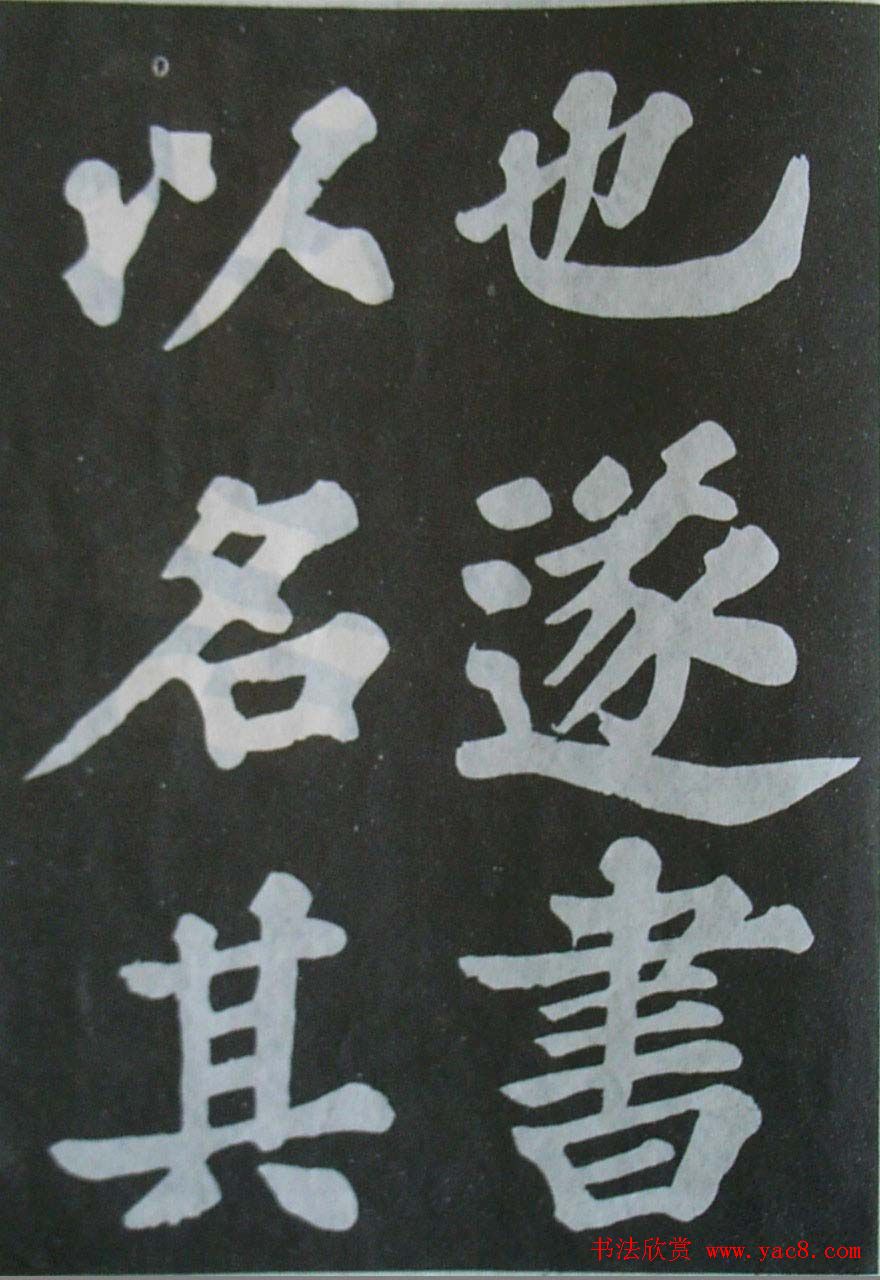 也遂書
以名其
书法欣赏 www.yac8.com